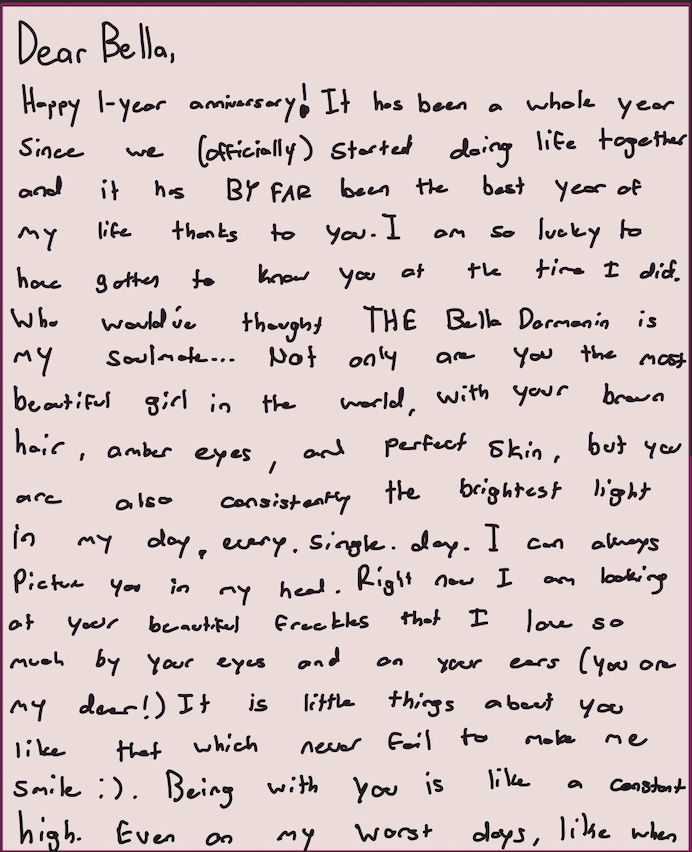 Dear Bella,
Happy 1-year anniversary! It has been a whole year
Since we (officially) started doing life together
and it has BY FAR been the best year of
my life thanks to you. I am so lucky to
have gotten to know you at the time I did.
Who would've thought THE Bella Darmanin is
my soulmate... Not only are you the most
beautiful girl in the world, with your brown
hair, amber eyes, and perfect skin, but you
are also consistently the brightest light
in my day, every. single. day. I can always
Picture you in my head. Right now I am looking
at your beautiful freckles that I love so
much by your eyes and on your ears (you are
my dear!) It is little things about you
like that which never fail to make me
smile :). Being with you is like a constant
high. Even on my worst days, like when